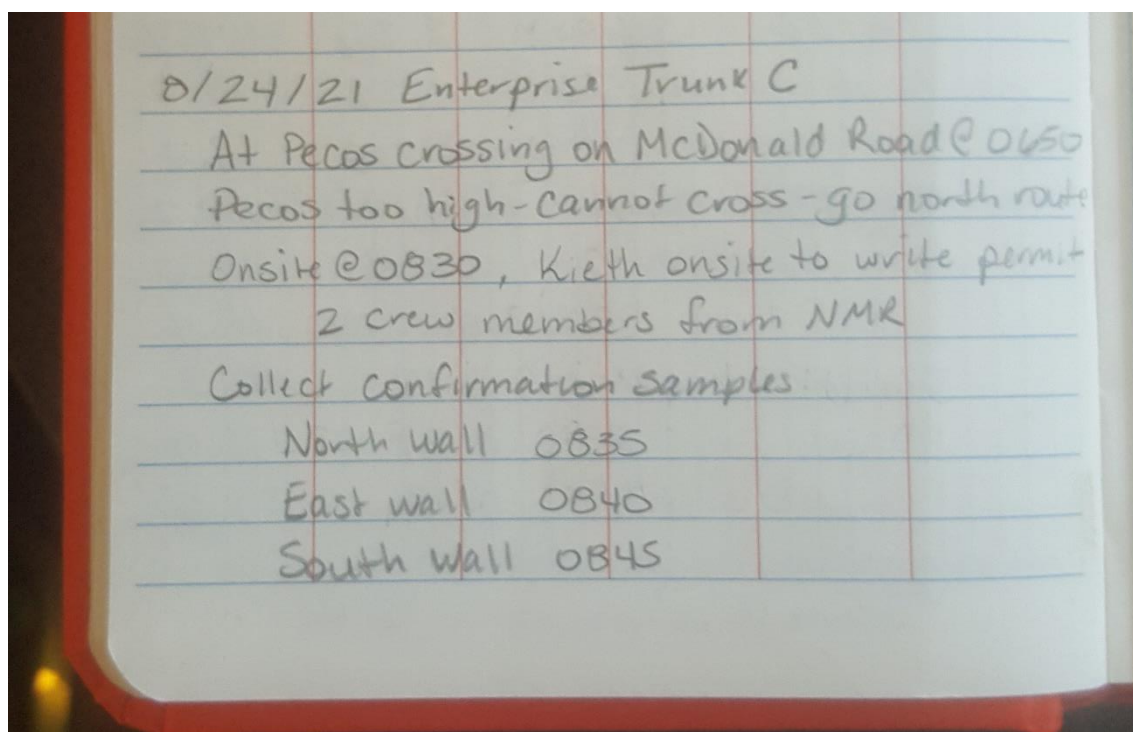 8/24/21 Enterprise Trunk C
At Pecos crossing on McDonald Road @ 0650
Pecos too high - cannot cross - go north route
Onsite @ 0830, Kieth onsite to write permit
2 crew members from NMR
Collect confirmation samples
North wall 0835
East wall 0840
South wall 0845